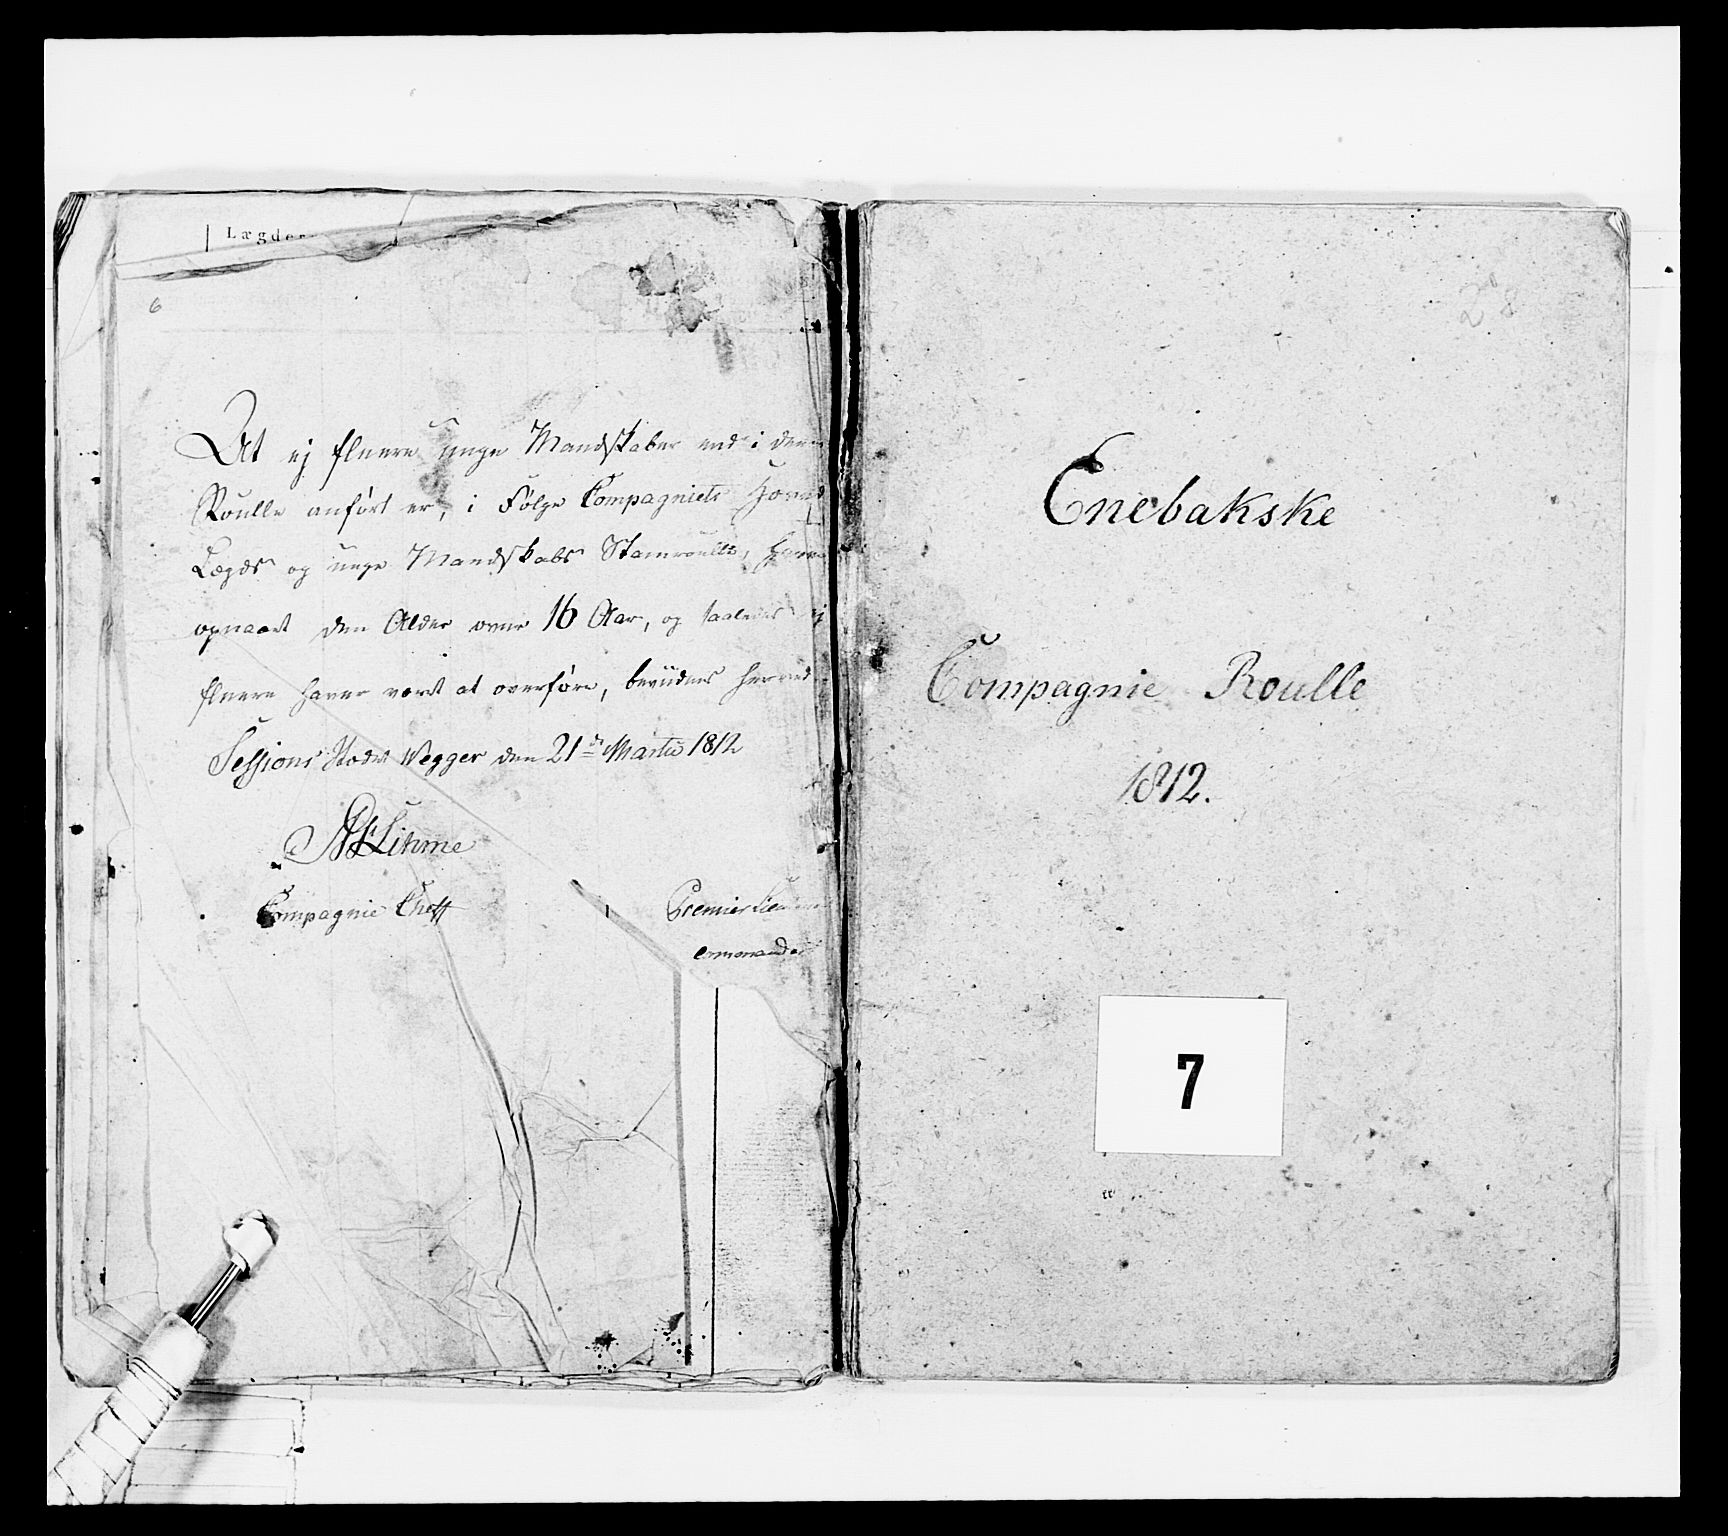 Lægder
6
At ej fleere unge Mandskaber end i denne
Roulle anført er, i Følge Compagniets Hoved
Lægds og unge Mandskabs Stamroulle, have
opnaaet den Alder over 16 Aar, og saaledes ej
fleere haver været at overføre, beviidnes herved
Sessions Stædet Wegger den 21de Martii 1812
Lihme
Compagnie Cheff
Premier Lieu
commander
28
Enebakske
Compagnie Roulle
1812.
7